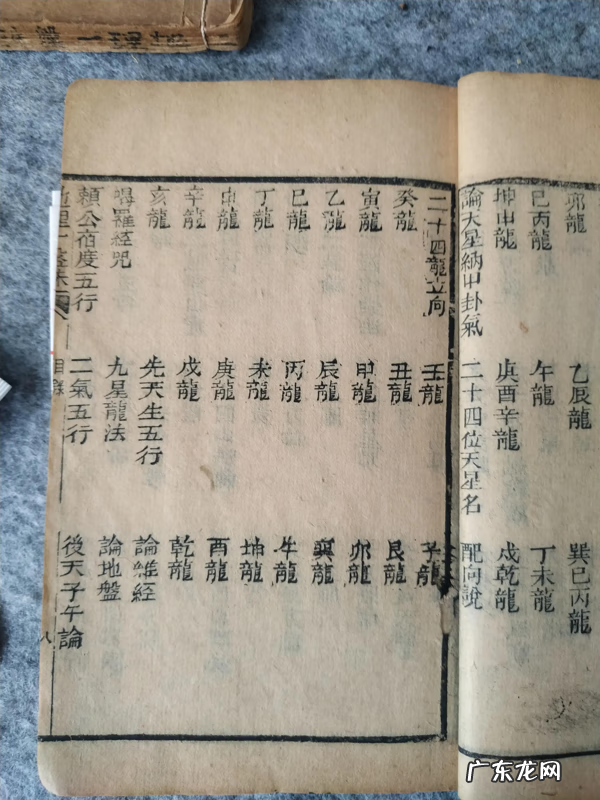 卯龍　乙辰龍　巽巳丙龍
巳丙龍　午龍　丁未龍
坤申龍　庚酉辛龍　戌乾龍
論天星納甲卦氣　二十四位天星名　配向說
二十四龍立向　壬龍　子龍
癸龍　丑龍　艮龍
寅龍　甲龍　卯龍
乙龍　辰龍　巽龍
巳龍　丙龍　午龍
丁龍　未龍　坤龍
申龍　庚龍　酉龍
辛龍　戌龍　乾龍
亥龍　先天生五行　論羅經
羅經咒　九星龍法　論地盤
賴公宿度五行　二氣五行　後天子午論
理一　目錄　八
理一
广东龙网